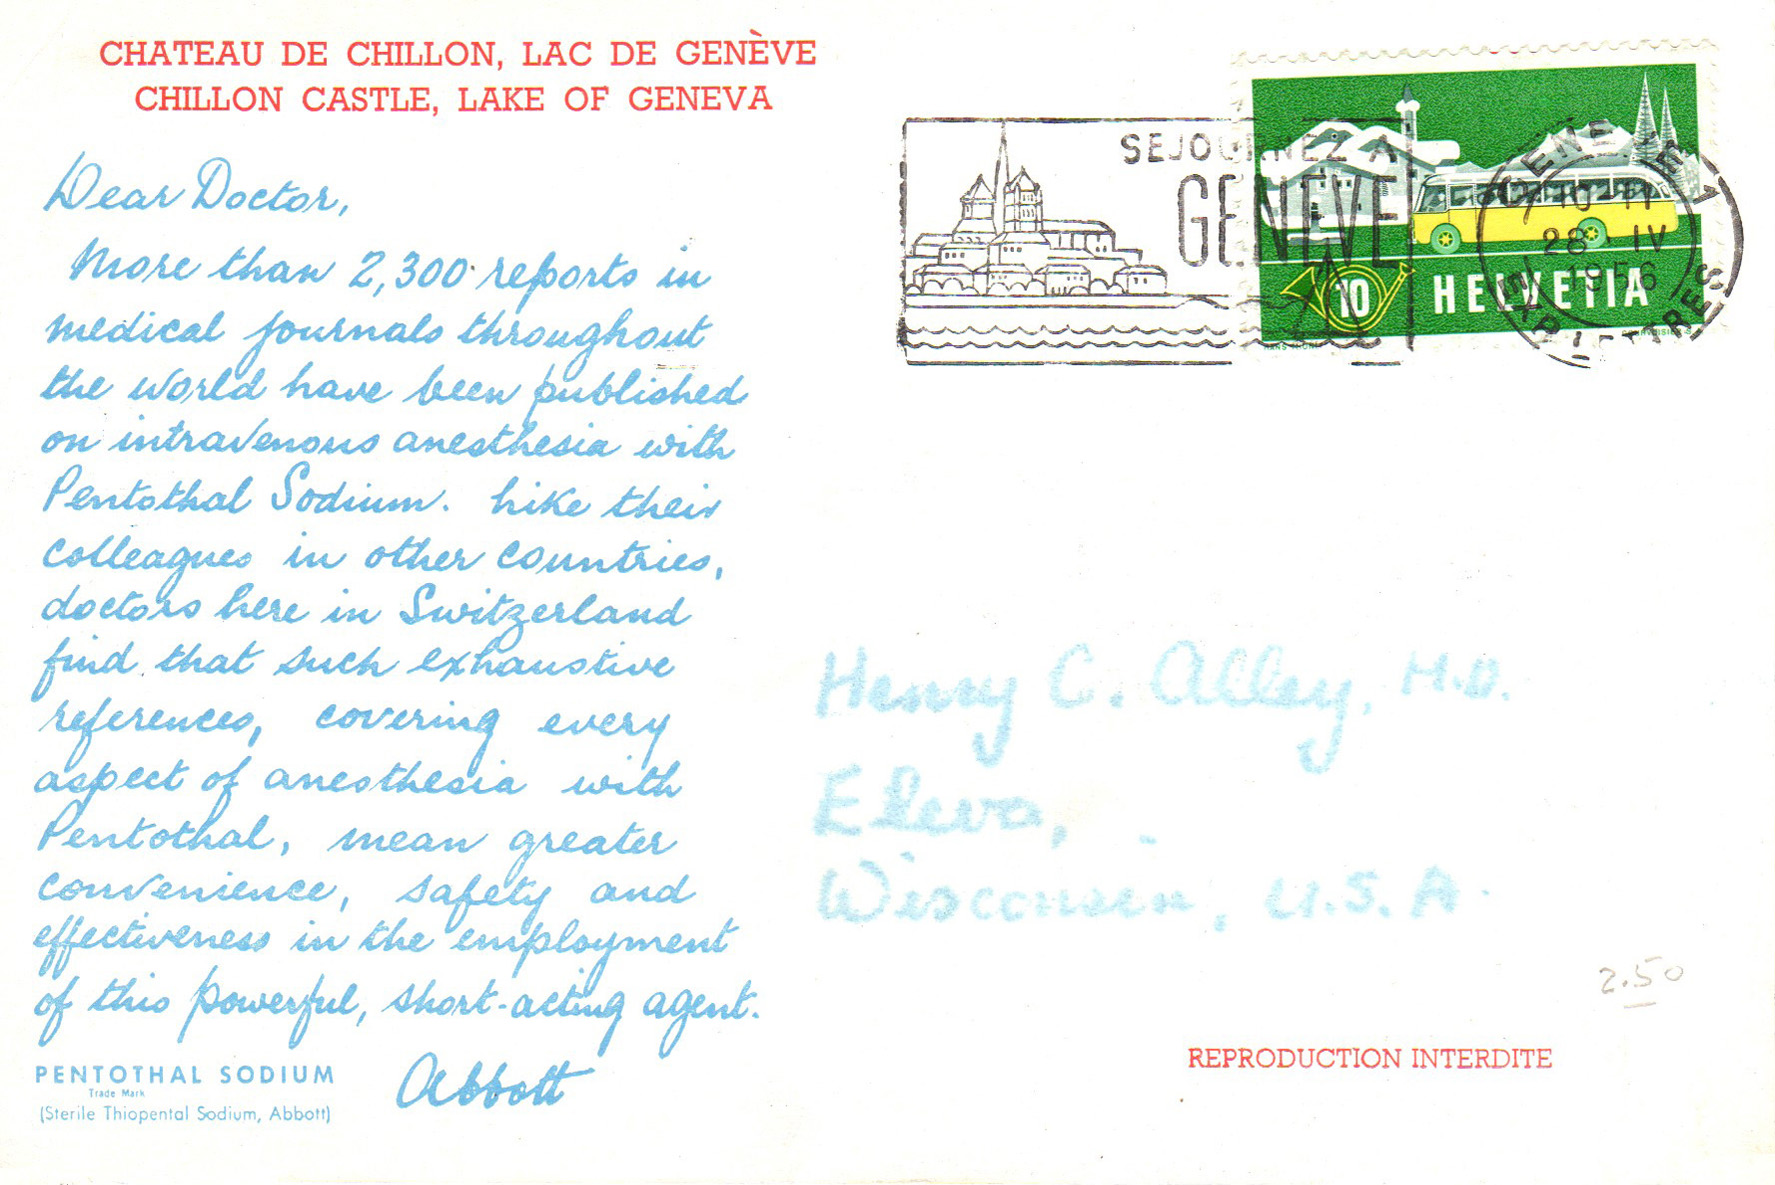 CHATEAU DE CHILLON, LAC DE GENÈVE
CHILLON CASTLE, LAKE OF GENEVA
Dear Doctor,
More than 2,300 reports in
medical journals throughout
the world have been published
on intravenous anesthesia with
Pentothal Sodium. Like their
colleagues in other countries,
doctors here in Switzerland
find that such exhaustive
references, covering every
aspect of anesthesia with
Pentothal, mean greater
convenience, safety and
effectiveness in the employment
of this powerful, short-acting agent.
Abbott
PENTOTHAL SODIUM
Trade Mark
(Sterile Thiopental Sodium, Abbott)
SEJOURNEZ A
GENEVE
GENEVE 1
28 IV
1956
EXP. LETTRES
10
HELVETIA
Henry C. Alley, M.D.
Eleva,
Wisconsin, U.S.A.
2.50
REPRODUCTION INTERDITE